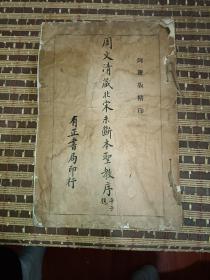 珂羅版精印
周文清藏北宋未斷本聖教序
有正書局印行